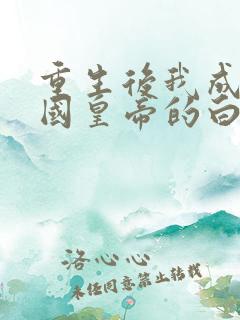 重生後我成
國皇帝的白
洛心心
未经同意禁止转载